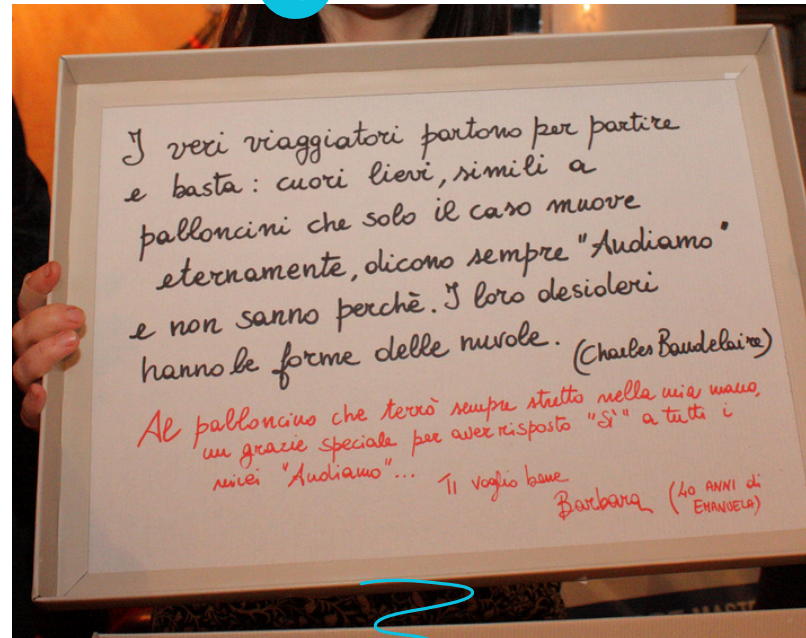 I veri viaggiatori partono per partire
e basta: cuori lievi, simili a
palloncini che solo il caso muove
eternamente, dicono sempre "Andiamo"
e non sanno perchè. I loro desideri
hanno le forme delle nuvole.
(Charles Baudelaire)
Al palloncino che terrò sempre stretto nella mia mano,
un grazie speciale per aver risposto "Sì" a tutti i
miei "Andiamo"...
Ti voglio bene
Barbara (40 ANNI di
EMANUELA)